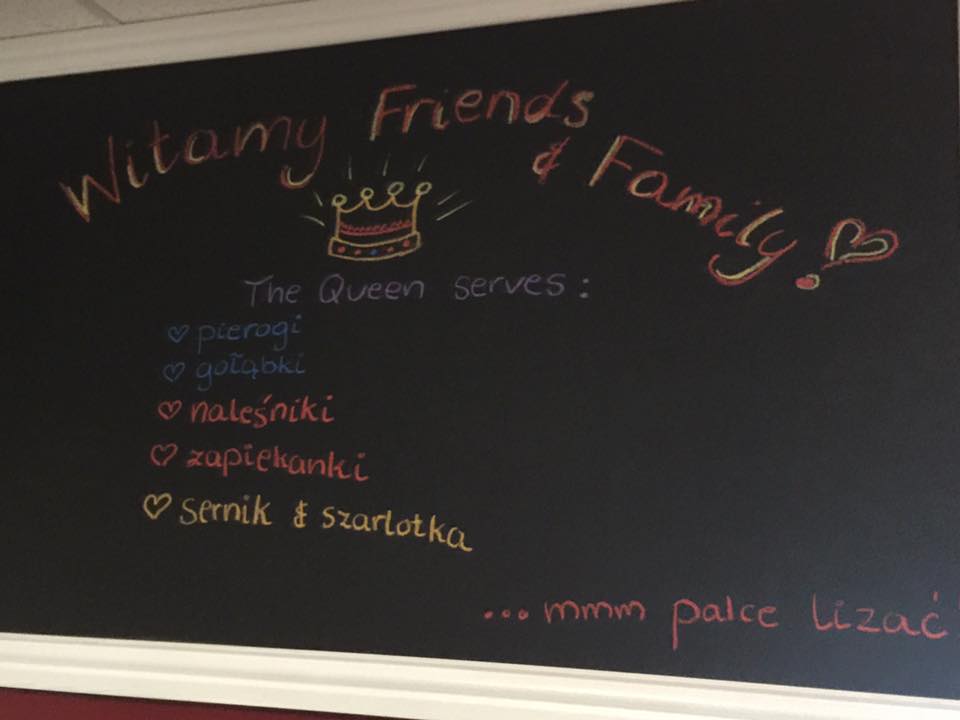 Witamy Friends & Family!
The Queen serves:
pierogi
gołąbki
naleśniki
zapiekanki
sernik & szarlotka
...mmm palce lizać